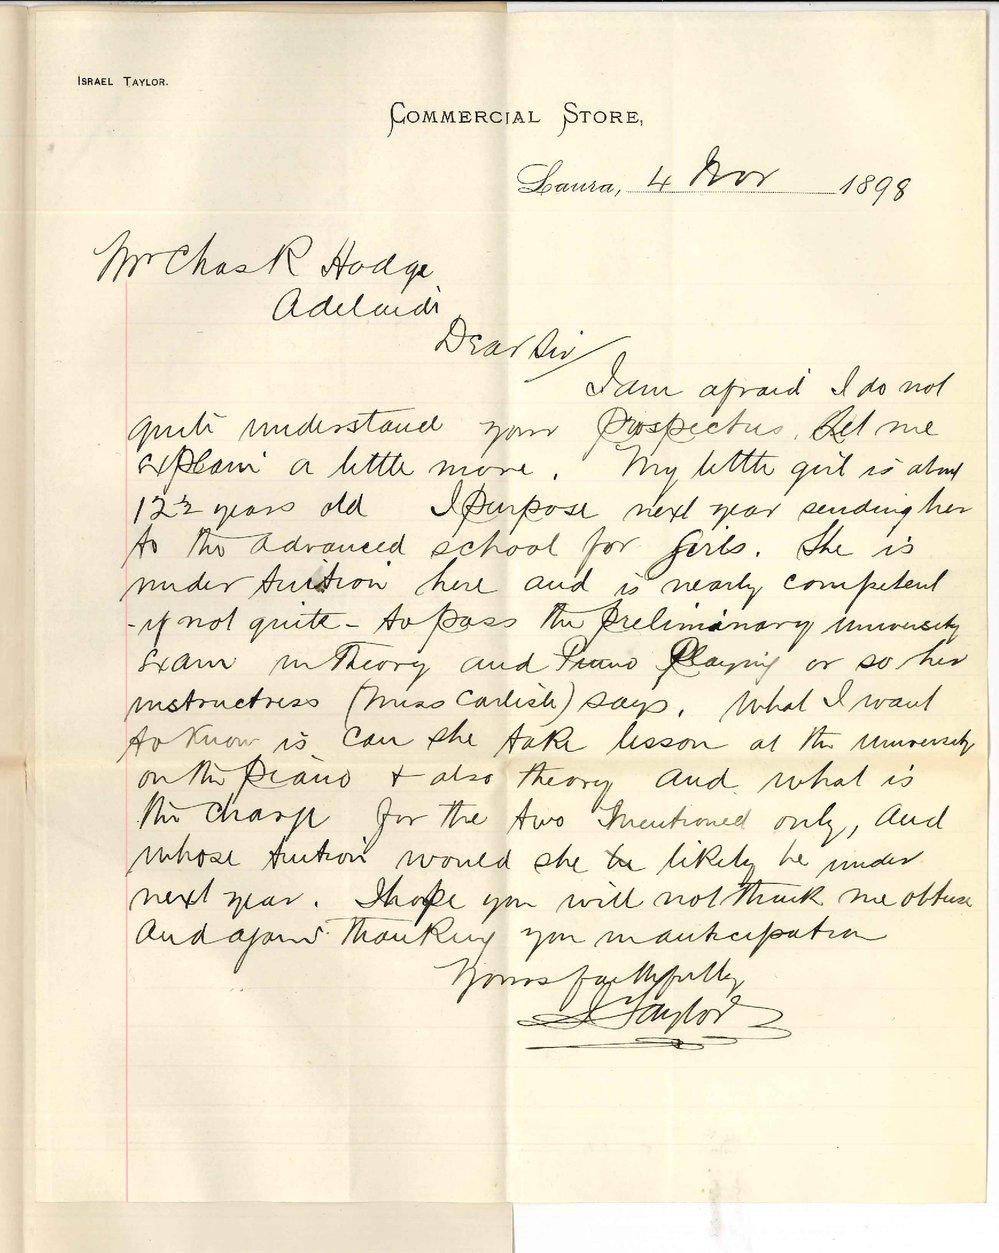 ISRAEL TAYLOR.
COMMERCIAL STORE,
Laura, 4 Nov 1898
Mr Chas R Hodge
Adelaide
Dear Sir
I am afraid I do not
quite understand your prospectus. Let me
explain a little more. My little girl is about
12½ years old I purpose next year sending her
to the advanced school for Girls. She is
under tuition here and is nearly competent
- if not quite - to pass the preliminary university
Exam in Theory and Piano Playing or so her
instructress (Miss Carlish) says. What I want
to know is can she take lesson at the university
on the piano & also theory and what is
the charge for the two mentioned only, And
whose tuition would she be likely be under
next year. I hope you will not think me obtuse
And again thanking you in anticipation
Yours faithfully
I Taylor